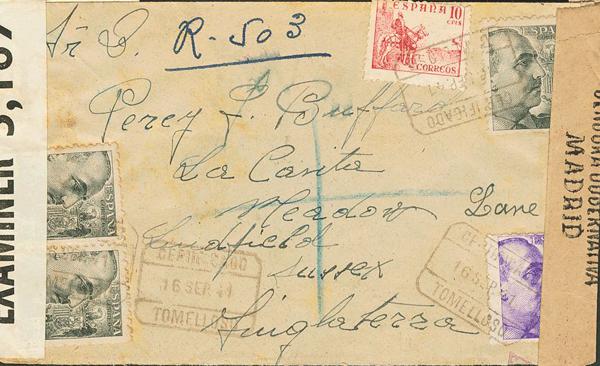 EXAMINER
Sr D.
R-503
ESPAÑA 10
CTS
CORREOS
Percy J. Buffard
La Casita
Meadow Lane
Lindfield
Sussex
Inglaterra
ESPAÑA
ESPAÑA
ESPAÑA
CERTIFICADO
CERTIFICADO
16 SEP. 41
TOMELLOSO
16 SEP. 41
TOMELLOSO
CENSURA GUBERNATIVA
MADRID